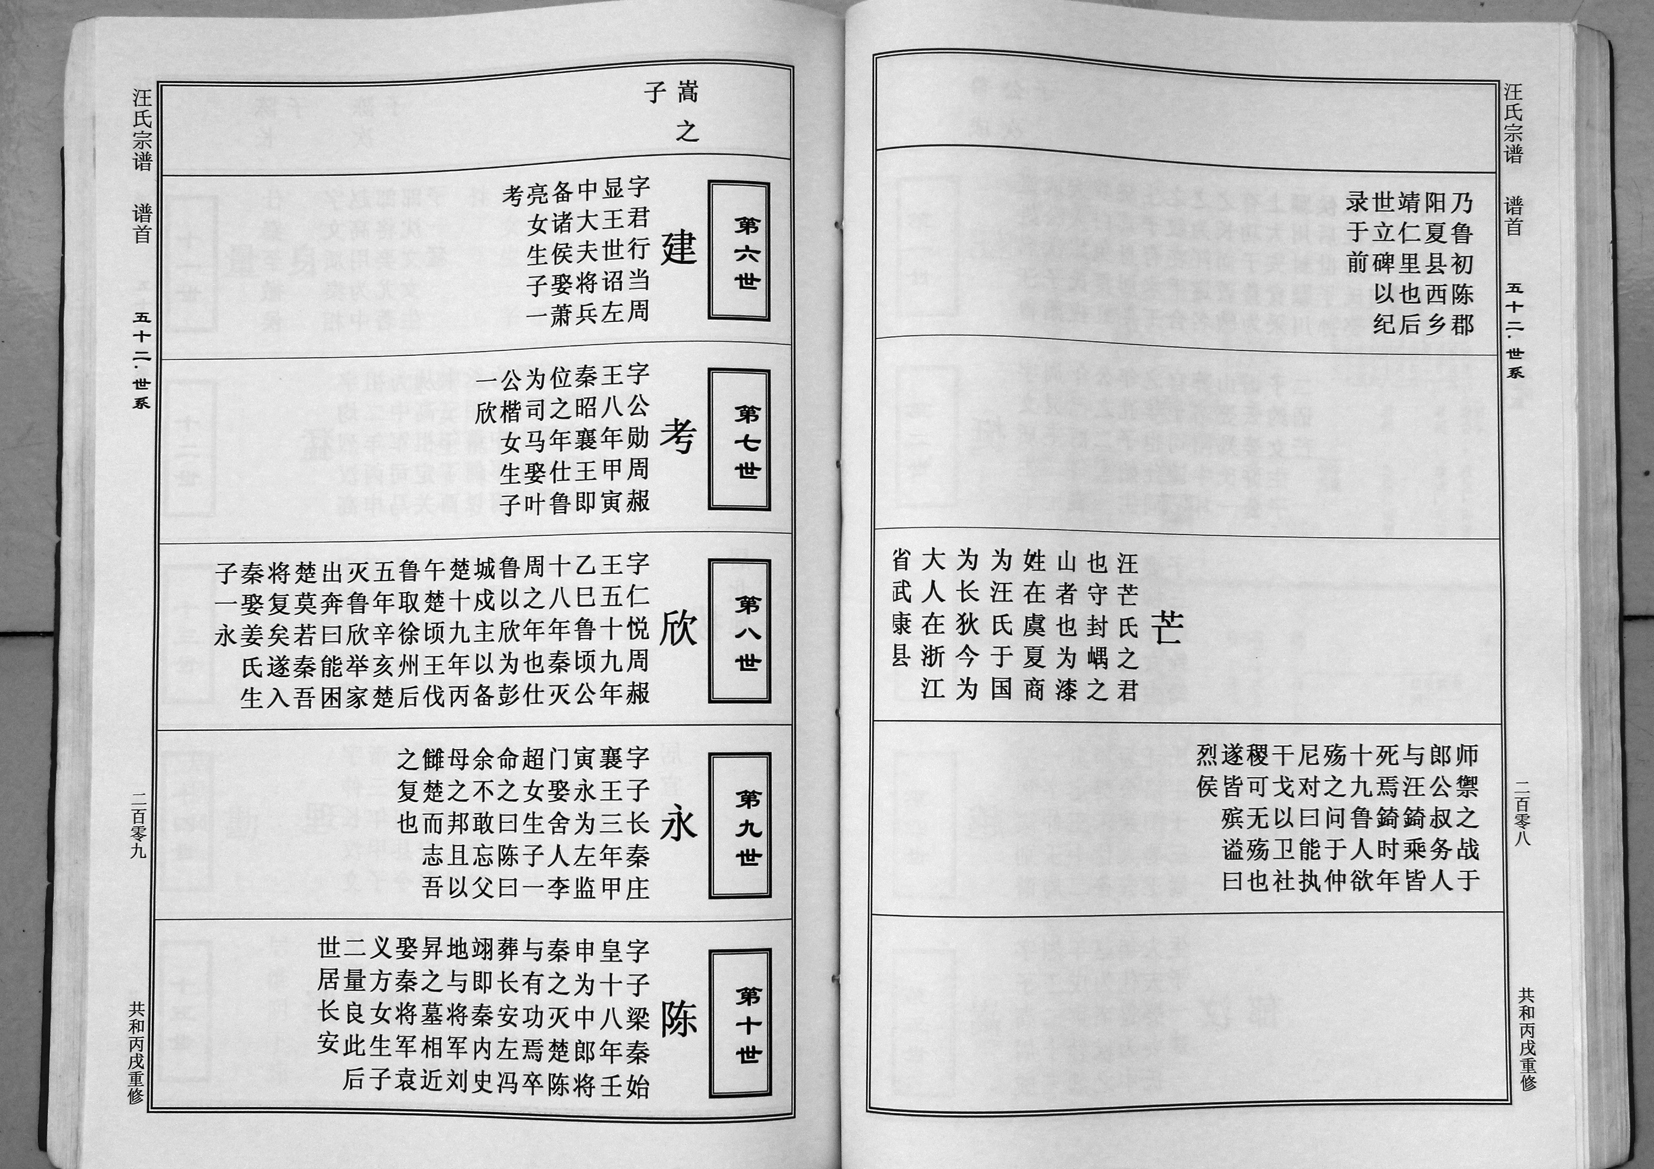 汪氏宗谱 谱首 五十二·世系
二百零八
共和丙戌重修
乃鲁初陈郡
阳夏县西乡
靖仁里也后
世立碑以纪
录于前
芒
汪芒氏之君
也守封嵎之
山者也为漆
姓在虞夏商
为汪氏于国
为长狄今为
大人在浙江
省武康县
师禦之战于
郎公叔务人
与汪錡乘皆
死焉錡时年
十九鲁人欲
殇之问于仲
尼对曰能执
干戈以卫社
稷可无殇也
遂皆殡谥曰
烈侯
嵩之
子
第六世
建
字君行当周
显王世诏左
中大夫将兵
备诸侯娶萧
亮女生子一
考
第七世
考
字公勋周赧
王八年甲寅
秦昭襄王即
位之年仕鲁
为司马娶叶
公楷女生子
一欣
第八世
欣
字仁悦周赧
王五十九年
乙巳鲁顷公
十八年秦灭
周之年也仕
鲁以欣为彭
城戍主以备
楚十九年丙
午楚顷王伐
鲁取徐州后
五年辛亥楚
灭鲁欣举家
出奔曰能困
楚莫若秦吾
将复矣遂入
秦娶姜氏生
子一永
第九世
永
字子长秦庄
襄王三年甲
寅永为左监
门娶舍人李
超女生子一
命之曰陈曰
余不敢忘父
母之邦且以
雠楚而志吾
之复也
第十世
陈
字子梁秦始
皇十八年壬
申为中郎将
秦之灭楚陈
与有功焉卒
葬长安左冯
翊即秦内史
地与将军刘
昇之墓相近
娶秦将军袁
义方女生子
二量良此后
世居长安
汪氏宗谱 谱首 五十二·世系
二百零九
共和丙戌重修